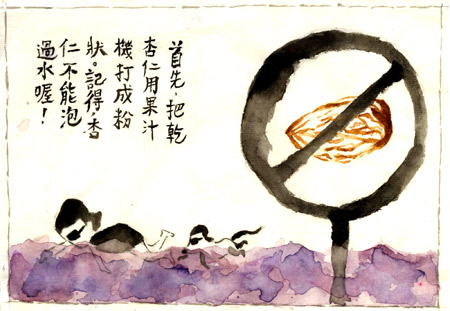 首先，把乾
杏仁用果汁
機打成粉
狀。記得，杏
仁不能泡
過水喔！